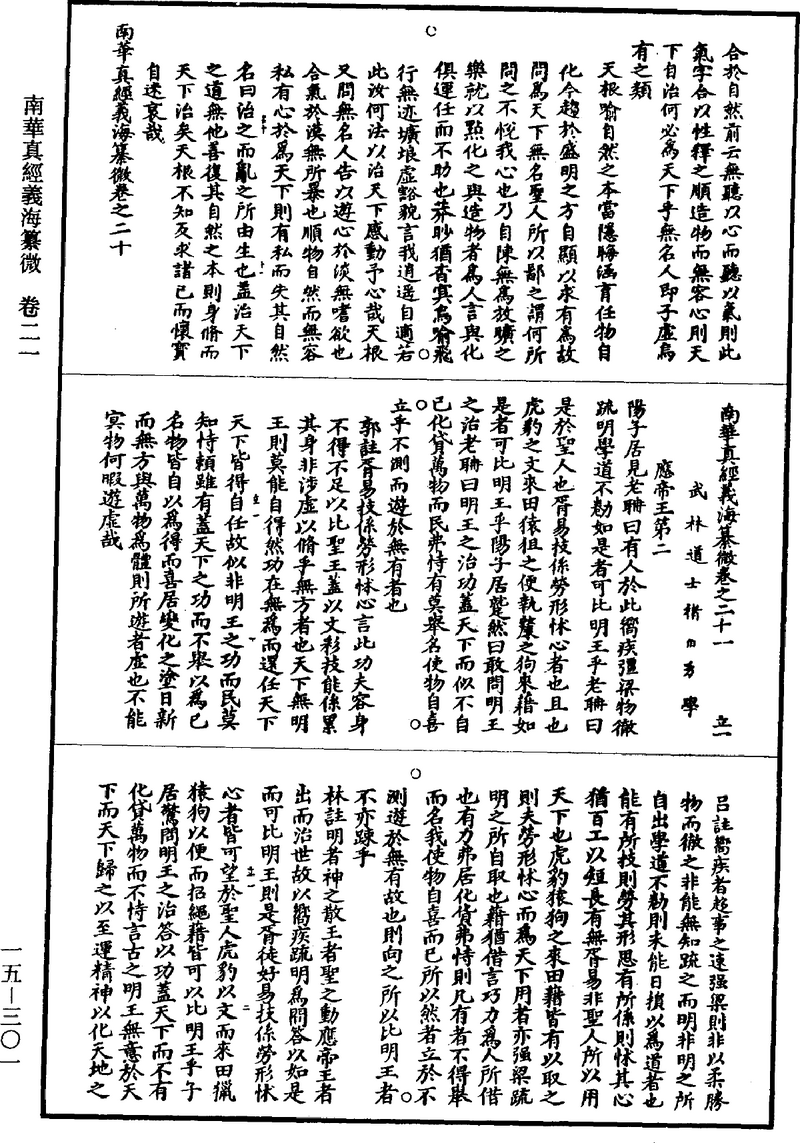 南華真經義海纂微 卷二一
一五—三〇一
合於自然前云無聽以心而聽以氣則此
氣字合以性釋之順造物而無容心則天
下自治何必為天下乎無名人即子虛烏
有之類
天根喻自然之本當隱晦涵育任物自
化今趨於盛明之方自顯以求有為故
問為天下無名聖人所以鄙之謂何所
問之不悅我心也乃自陳無為放曠之
樂就以點化之與造物者為人言與化
俱運任而不助也莽眇猶杳冥鳥喻飛
行無迹壙埌虛豁貌言我逍遙自適若
此汝何法以治天下感動予心哉天根
又問無名人告以遊心於淡無嗜欲也
合氣於漠無所暴也順物自然而無容
私有心於為天下則有私而失其自然
名曰治之而亂之所由生也蓋治天下
之道無他善復其自然之本則身脩而
天下治矣天根不知反求諸己而懷寶
自迷哀哉
南華真經義海纂微卷之二十
南華真經義海纂微卷之二十一 立一
武林道士褚伯秀學
應帝王第二
陽子居見老聃曰有人於此嚮疾彊梁物徹
疏明學道不勌如是者可比明王乎老聃曰
是於聖人也胥易技係勞形怵心者也且也
虎豹之文來田猿狙之便執斄之狗來藉如
是者可比明王乎陽子居蹵然曰敢問明王
之治老聃曰明王之治功蓋天下而似不自
已化貸萬物而民弗恃有莫舉名使物自喜
立乎不測而遊於無有者也
郭註胥易技係勞形怵心言此功夫容身
不得不足以比聖王蓋以文彩技能係累
其身非涉虛以脩乎無方者也天下無明
王則莫能自得然功在無為而還任天下
天下皆得自任故似非明王之功而民莫
知恃賴雖有蓋天下之功而不舉以為己
名物皆自以為得而喜居變化之塗日新
而無方與萬物為體則所遊者虛也不能
冥物何暇遊虛哉
呂註嚮疾者趨事之速强梁則非以柔勝
物而徹之非能無知疏之而明非明之所
自出學道不勌則未能日損以為道者也
能有所技則勞其形思有所係則怵其心
猶百工以短長有無胥易非聖人所以用
天下也虎豹猿狗之來田藉皆有以取之
則夫勞形怵心而為天下用者亦强梁疏
明之所自取也藉猶借言巧力為人所借
也有力弗居化貸弗恃則凡有者不得舉
而名我使物自喜而已所以然者立於不
測遊於無有故也則向之所以比明王者
不亦踈乎
林註明者神之散王者聖之動應帝王者
出而治世故以嚮疾疏明為問荅以如是
而可比明王則是胥徒好易技係勞形怵
心者皆可望於聖人虎豹以文而來田獵
猿狗以便而招繩藉皆可以比明王乎子
居驚問明王之治荅以功蓋天下而不有
化貸萬物而不恃言古之明王無意於天
下而天下歸之以至運精神以化天地之